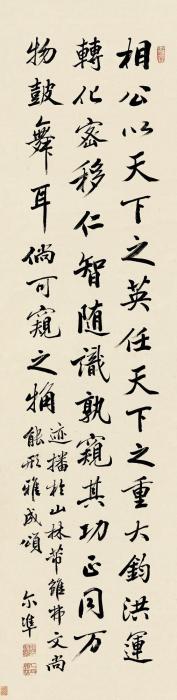 相公以天下之英任天下之重大鈞洪運
轉化密移仁智随識孰窺其功正同万
物鼓舞耳倘可窺之桷
迹播於山林帯雖弗文尚
能形雅成頌
尔準